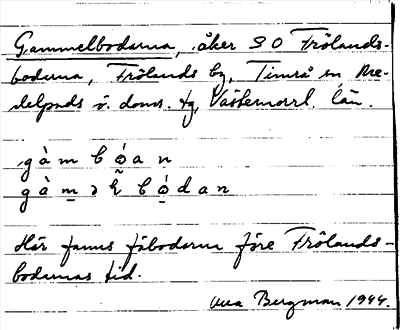 Gammelbodarna, åker S O Frölands-
bodarna, Frölands by, Timrå sn, Me-
delpads ö. doms. tg, Västernorrl. län.
gàm bó̤an
gàm̲ə bó̤dan
Här fanns fäbodarna före Frölands-
bodarnas tid.
Bergman 1944.